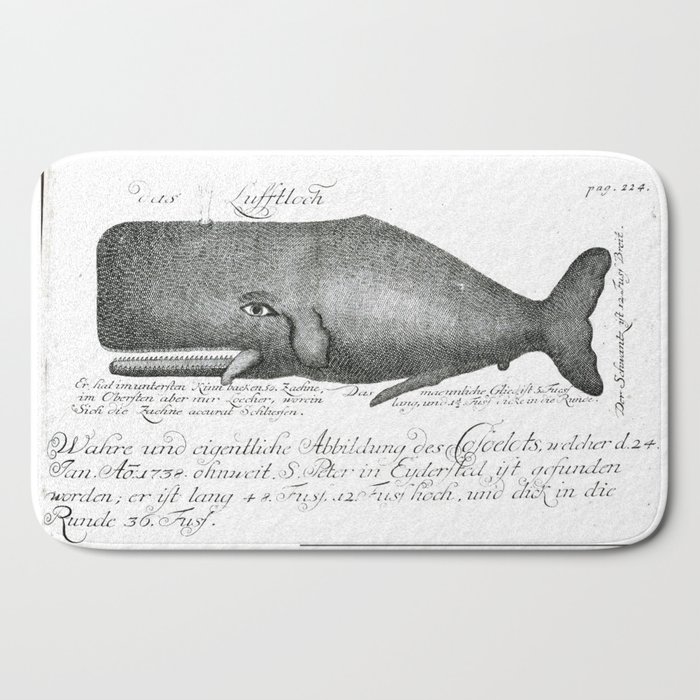 das Lufftloch
pag. 224.
Der Schwantz ist 12 Fusſ Breit.
Er hat im untersten Kinn backen 50. Zaehne,
im Obersten aber nur Loecher, worein
Sich die Zaehne accurat Schliessen.
Das maennliche Glied ist 5. Fuss
lang, und 1½ Fusſ dicke in die Runde.
Wahre und eigentliche Abbildung des Cosoelots, welcher d. 24.
Jan. Aõ. 1738. ohnweit S. Peter in Eydersted, ist gefunden
worden; er ist lang 48. Fusſ. 12 Fusſ hoch, und dick in die
Runde 36. Fusſ.